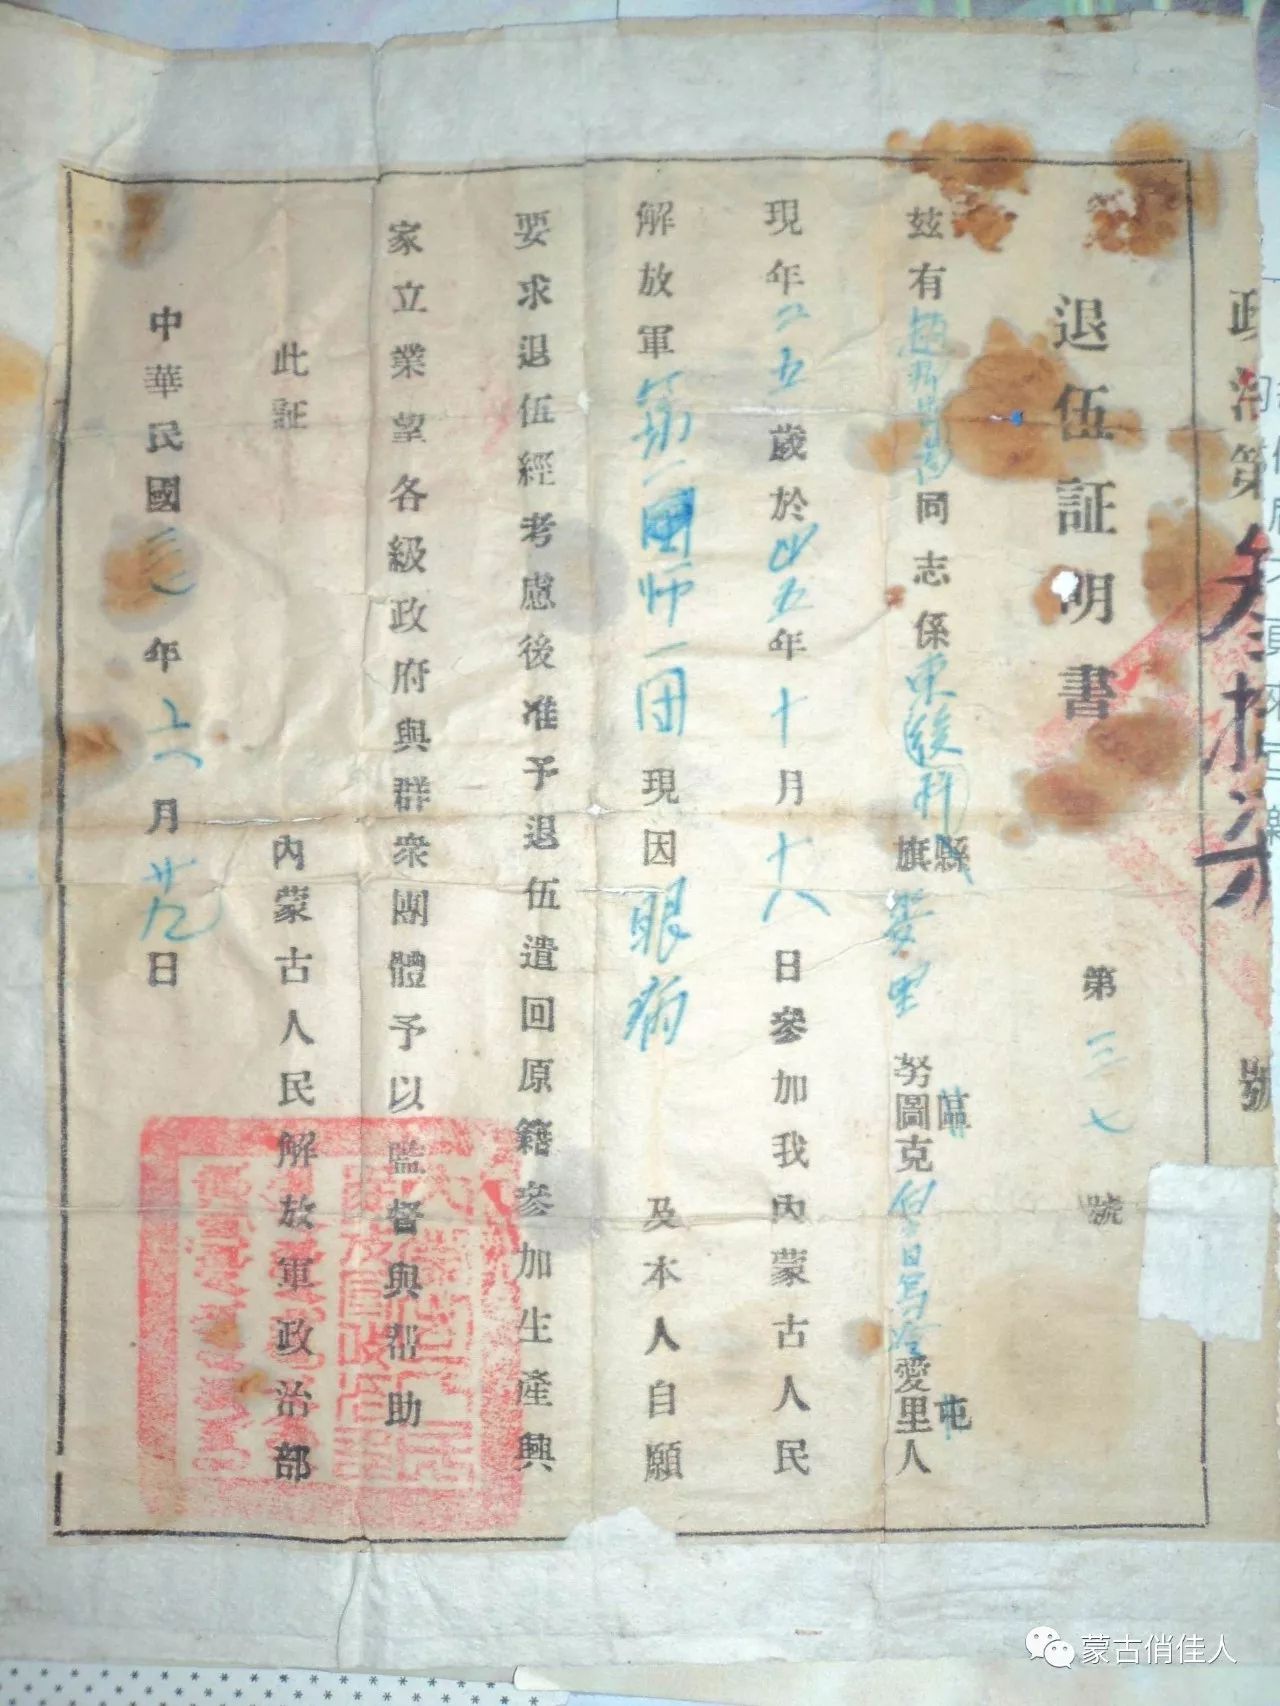 政治第叁拾柒號
退伍証明書
第三七號
玆有同志係東後科旗縣努圖克區愛里屯人
現年二五歲於卅五年十月十八日參加我內蒙古人民
解放軍第一師一团現因眼病及本人自願
要求退伍經考慮後准予退伍遣回原籍參加生產興
家立業望各級政府與群衆團體予以監督與帮助
此証
內蒙古人民解放軍政治部
中華民國年月廿九日
蒙古俏佳人